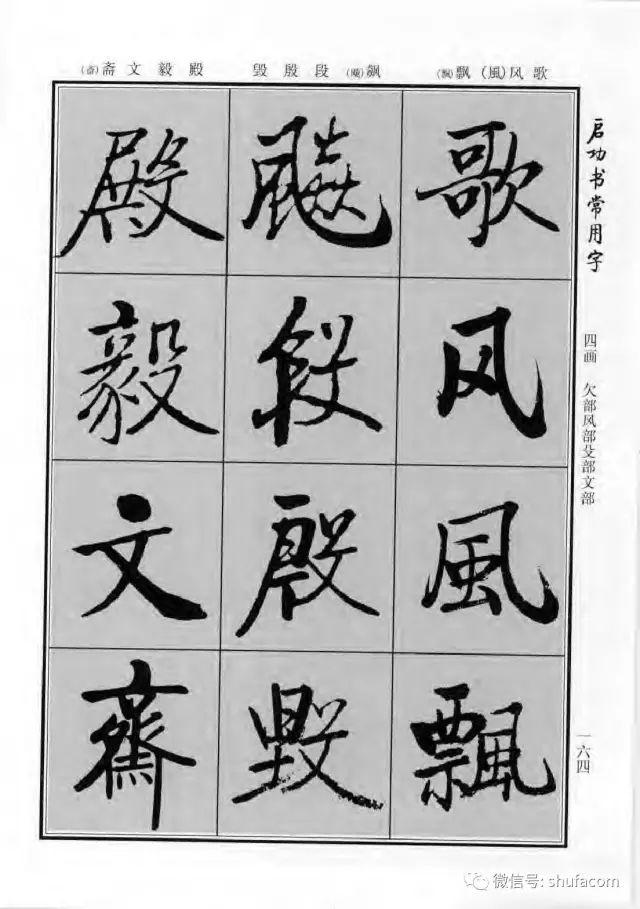 启功书常用字
四画 欠部风部殳部文部
一六四
歌风(風)飘(飄)
飙(飈)段殷毁
殿毅文斋(齋)
歌
风
風
飄
飈
段
殷
毁
殿
毅
文
齋
微信号: shufacom